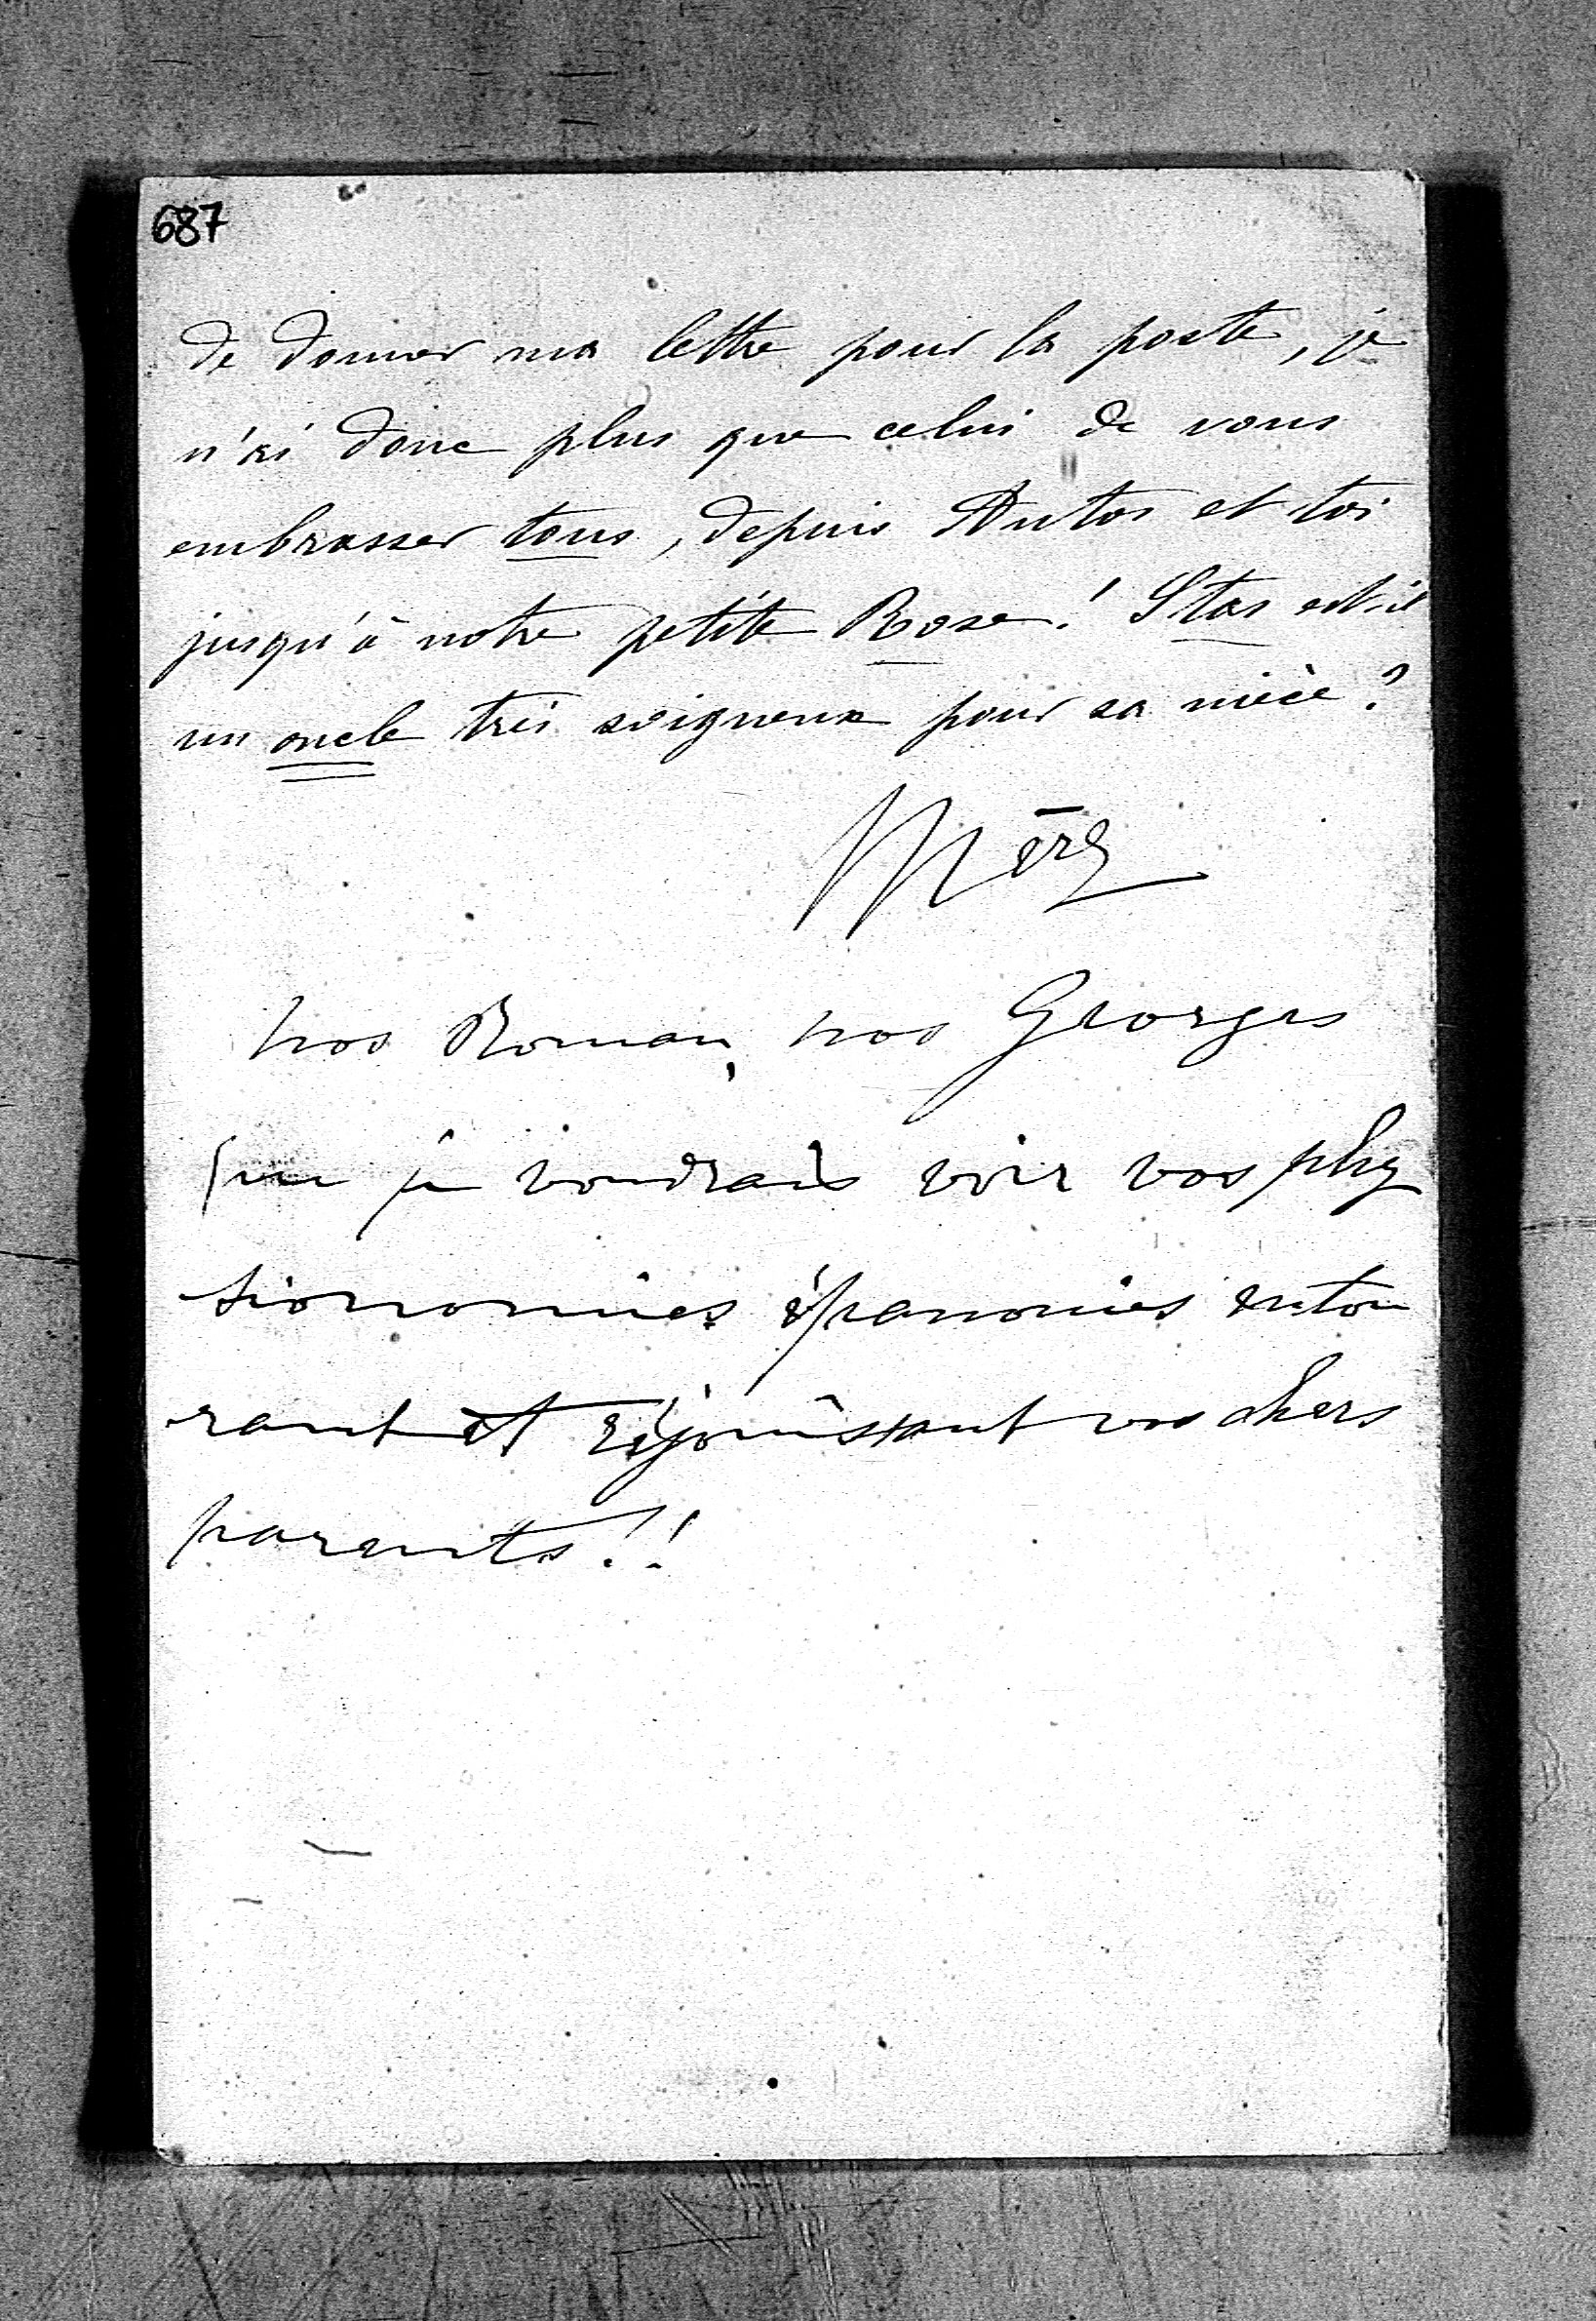 687
de donner ma lettre pour la poste, je
n'ai donc plus que celui de vous
embrasser tous, depuis Antos et toi
jusqu'à notre petite Rose! Stas est-il
un oncle très soigneux pour sa nièce?
Mère
nos Roman, nos Georges
que je voudrais voir vos phy
sionomies épanouies entou
rant et réjouissant vos chers
parents!!